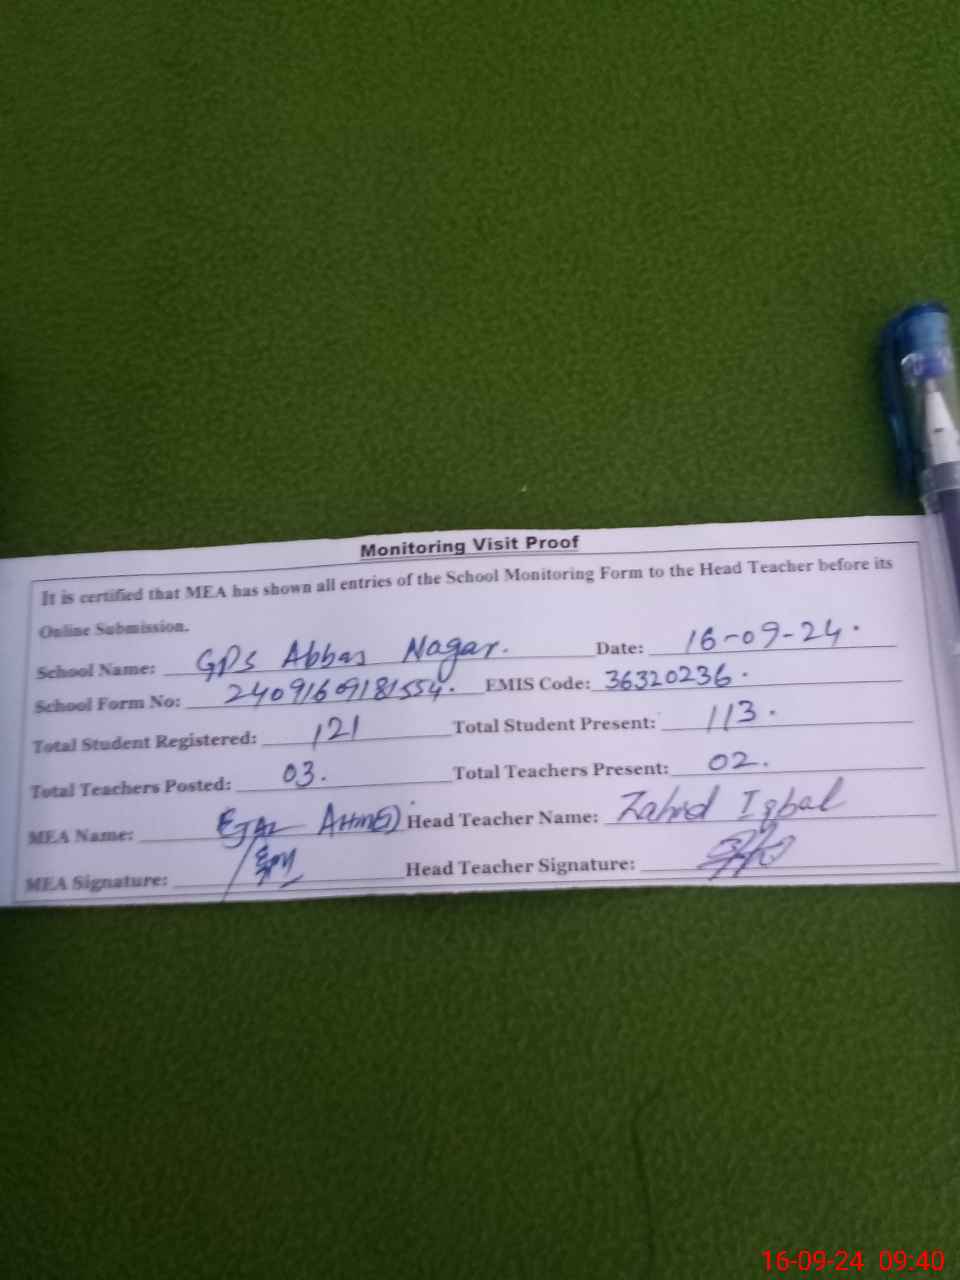 Monitoring Visit Proof
It is certified that MEA has shown all entries of the School Monitoring Form to the Head Teacher before its
Online Submission.
School Name: GPS Abbas Nagar. Date: 16-09-24.
School Form No: 24091609181554. EMIS Code: 36320236.
Total Student Registered: 121 Total Student Present: 113.
Total Teachers Posted: 03. Total Teachers Present: 02.
MEA Name: EJAZ AHMED Head Teacher Name: Zahid Iqbal
MEA Signature: Head Teacher Signature:
16-09-24 09:40